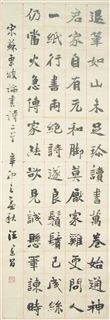 退筆如山未足珍讀書萬卷始通神
君家自有元和腳莫厭家雞更問人
一紙行書兩絕詩遂良鬚鬢已成絲
仍當火急傳家法欲見誠懸筆諫時
宋蘇東坡論書詩二首 辛卯之